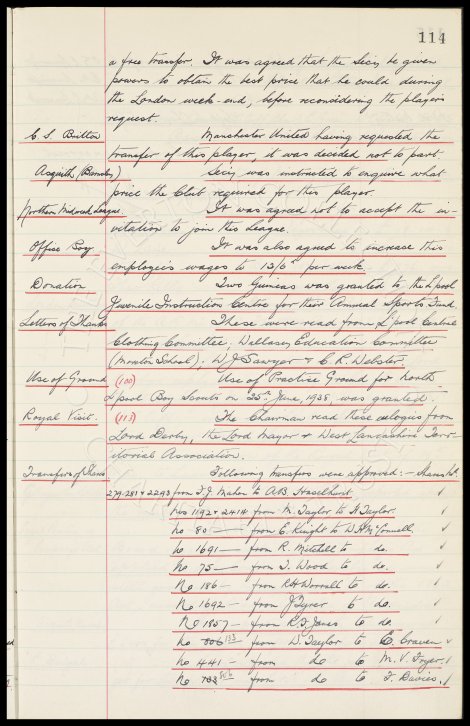 114
a free transfer. It was agreed that the Secy be given
powers to obtain the best price that he could during
the London week-end, before reconsidering the players
request.
C. S. Britton Manchester United having requested the
transfer of this player, it was decided not to part
Asquith (Barnsley) Secy was instructed to enquire what
price the Club required for this player
Northern Midweek League. It was agreed not to accept the in-
vitation to join this League.
Office Boy It was also agreed to increase this
employee's wages to 13/6d per week.
Donation Two Guineas was granted to the L'pool
Juvenile Instruction Centre for their Annual Sports Fund.
Letters of Thanks These were read from L'pool Central
Clothing Committee, Wallasey Education Committee
(Moreton School), W J Sawyer & C. R. Webster.
Use of Ground (100) Use of Practice Ground for North
L'pool Boy Scouts on 25th June, 1938, was granted.
Royal Visit. (113) The Chairman read these from
Lord Derby, the Lord Mayor & West Lancashire Terr-
itorial Association.
Transfers of Shares Following transfers were approved:- Shares Nd.
279.281 & 2293 from F. J. Mahon to A.B. Haselhurst ✓
Nos 1192 & 2414 from M. Taylor to H Taylor. ✓
No 80 — from C. Knight to W.H. McConnell. ✓
No 1691 — from R. Mitchell to do. ✓
No 75 — from J. Wood to do. ✓
No 186 — from R H Worrall to do. ✓
No 1692 — from J Tyrer to do. ✓
No 1857 — from R. J. Jones to do ✓
No 806 133 — from W Taylor to C. Craven ✓
No 441 — from do to M. V. Fryer. ✓
No 133 806 — from do to F. Davies. ✓